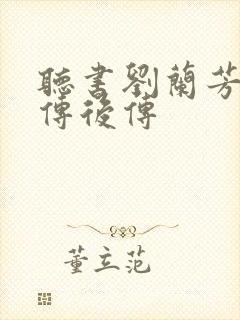 聽書劉蘭芳
傳後傳
董立范